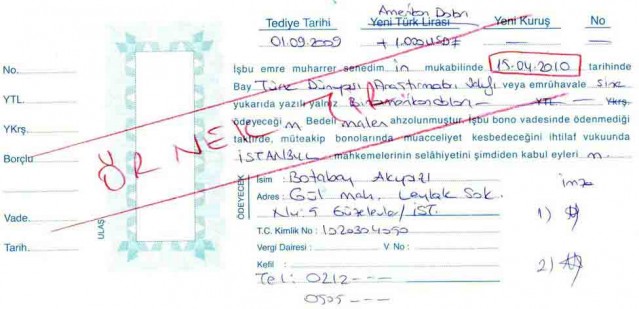 Amerikan Doları
Tediye Tarihi Yeni Türk Lirası Yeni Kuruş No
01.09.2009 # 1.000 USD # — —
No.
YTL.
YKrş.
Borçlu
Vade.
Tarih.
ÖRNEKTİR
ULAŞ
ÖDEYECEK
İşbu emre muharrer senedim in mukabilinde 15.04.2010 tarihinde
Bay Türk Dünyası Araştırmaları Vakfı veya emrühavale sine
yukarıda yazılı yalnız Bin Amerikan doları — YTL — Ykrş.
ödeyeceğ m Bedeli malen ahzolunmuştur. İşbu bono vadesinde ödenmediği
taktirde, müteakip bonolarında muacceliyet kesbedeceğini ihtilaf vukuunda
İSTANBUL mahkemelerinin selâhiyetini şimdiden kabul eyleri m.
İsim : Botabay Akypızı imza
Adres : Gül mah. Leylak Sok.
No: 5 Güzelevler/İST. 1)
T.C. Kimlik No : 1020304050
Vergi Dairesi : V No :
Kefil : 2)
Tel: 0212 - - -
0505 - - -